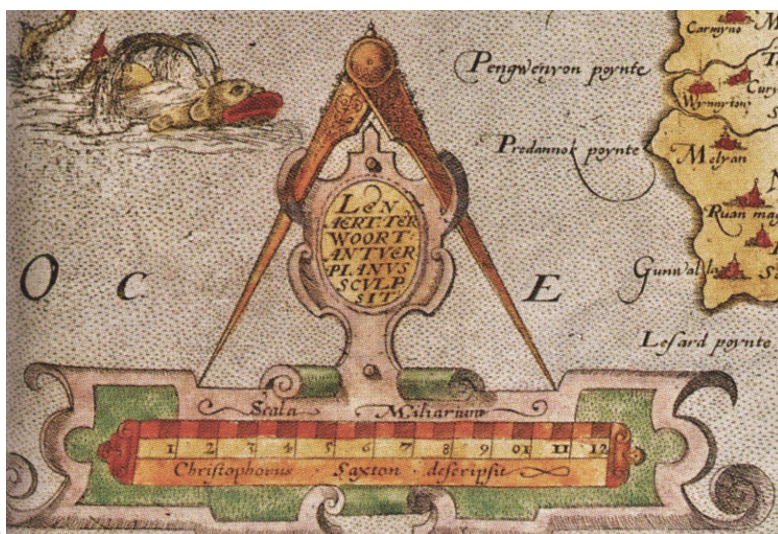 Carmyno
Pengwenyon poynte
Cury
Wynnarton
Predannok poynte
Melyan
Ruan ma
Gunwallo
Lesard poynte
O C E
LEN
AERT·TER
WOORT·
ANTVER
PIANVS
SCVLP
SIT
Scala Miliarium
1 2 3 4 5 6 7 8 9 01 11 12
Christophorus · Saxton · descripsit